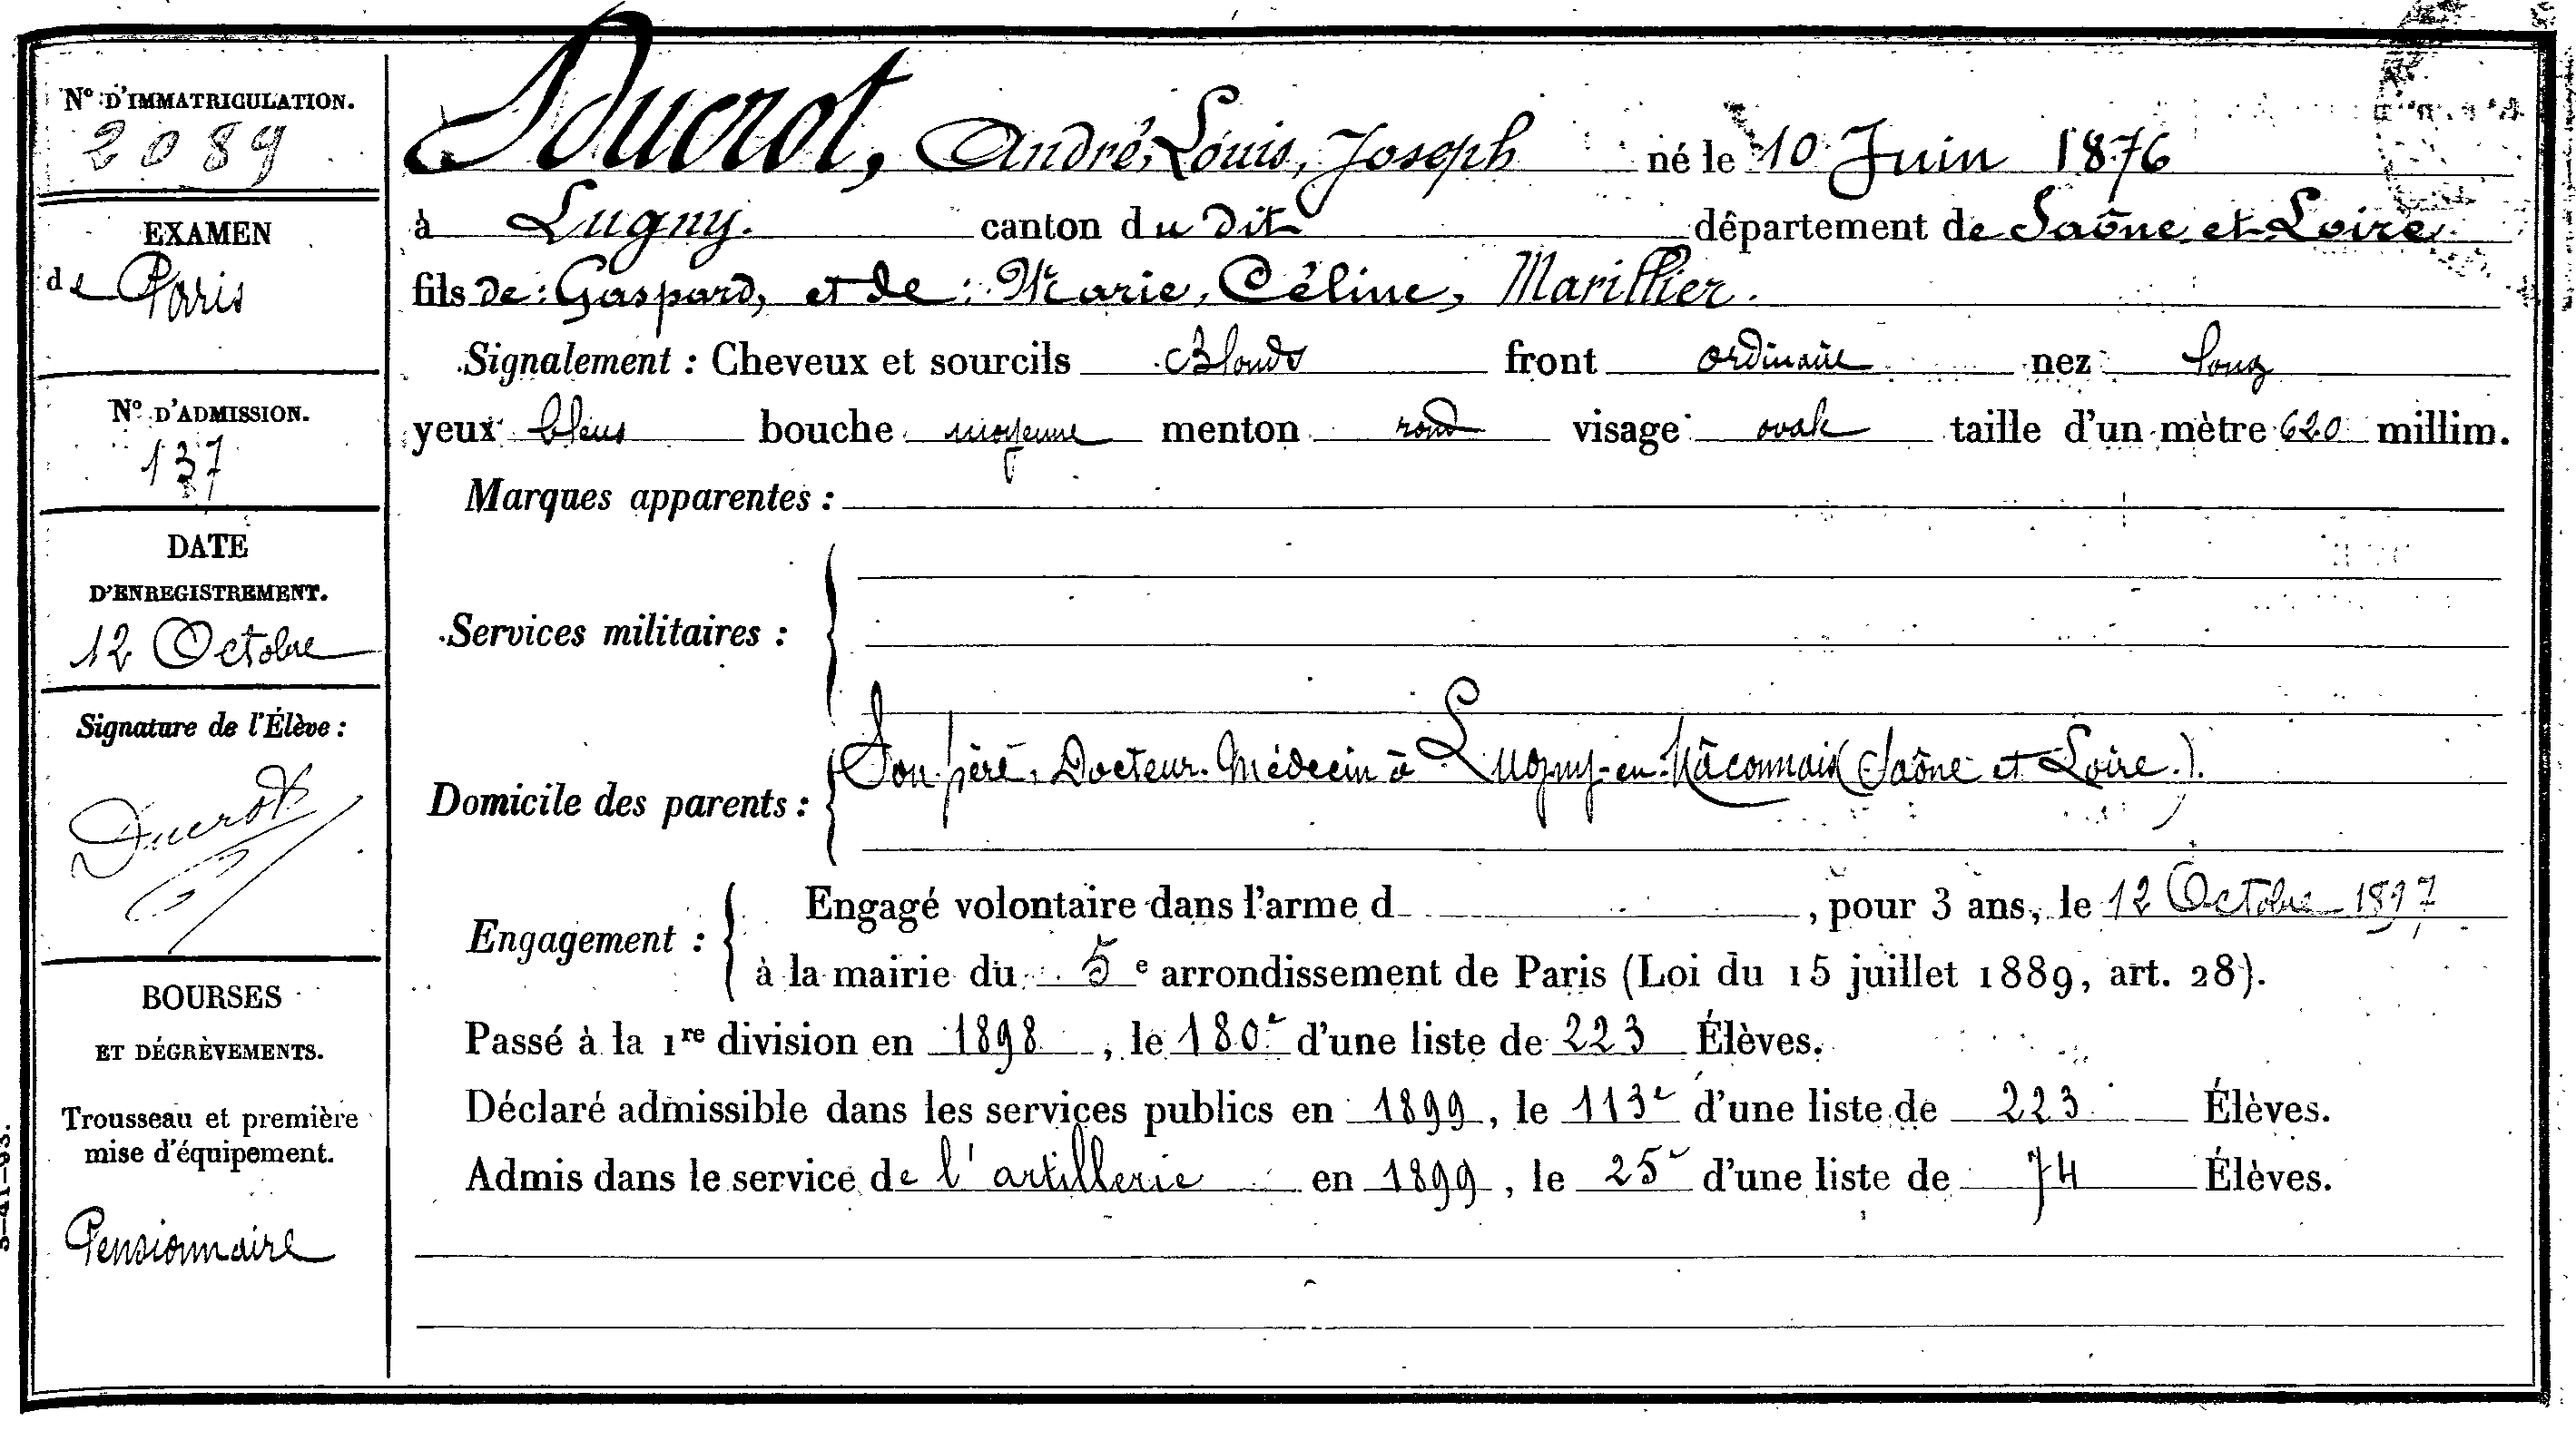 N° D'IMMATRICULATION.
2089
EXAMEN
de Paris
N° D'ADMISSION.
137
DATE
D'ENREGISTREMENT.
12 Octobre
Signature de l'Élève :
Ducrot
BOURSES
ET DÉGRÈVEMENTS.
Trousseau et première
mise d'équipement.
Pensionnaire
Ducrot, André, Louis, Joseph né le 10 Juin 1876
à Lugny. canton du dit département de Saône et Loire
fils de : Gaspard, et de : Marie, Céline, Marillier.
Signalement : Cheveux et sourcils Blonds front ordinaire nez long
yeux bleus bouche moyenne menton rond visage ovale taille d'un mètre 620 millim.
Marques apparentes :
Services militaires :
Domicile des parents : Son père, Docteur-Médecin à Lugny-en-Mâconnais (Saône et Loire.).
Engagement : Engagé volontaire dans l'arme d , pour 3 ans, le 12 Octobre 1897
à la mairie du 5e arrondissement de Paris (Loi du 15 juillet 1889, art. 28).
Passé à la 1re division en 1898, le 180e d'une liste de 223 Élèves.
Déclaré admissible dans les services publics en 1899, le 113e d'une liste de 223 Élèves.
Admis dans le service de l'artillerie en 1899, le 25e d'une liste de 74 Élèves.